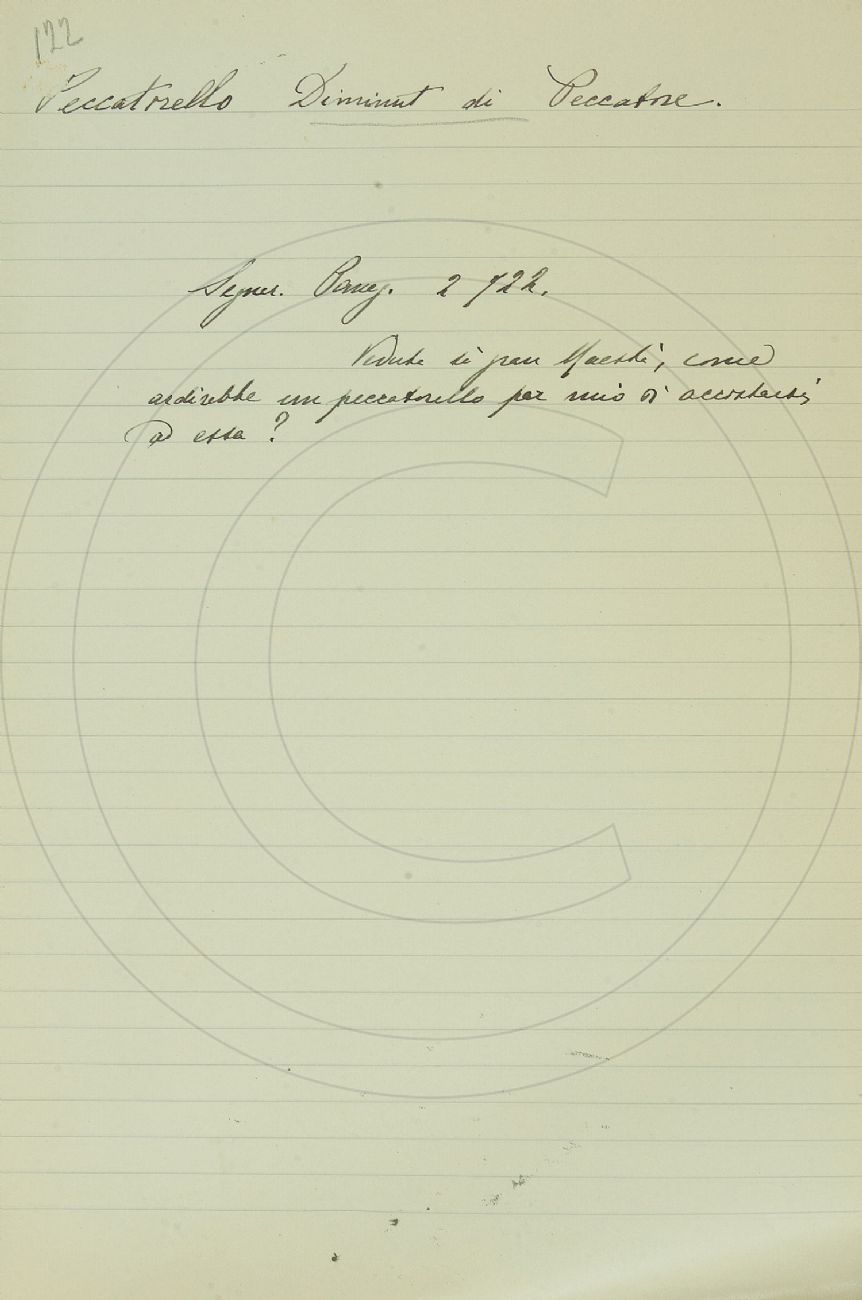 122
Peccatorello Diminut di Peccatore.
Segner. Paneg. 2 722.
Veduta sì gran Maestà, come
ardirebbe un peccatorello par mio di accostarsi
ad essa?